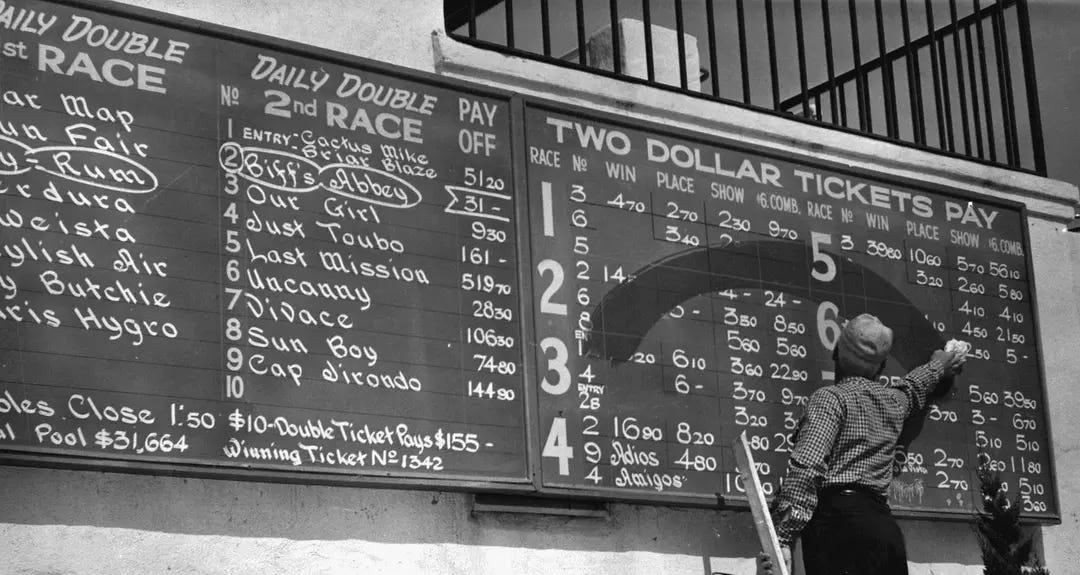 DAILY DOUBLE
1st RACE
ar Map
un Fair
y = Rum
erdura
weista
ylish Air
y Butchie
ris Hygro
les Close 1:50
l Pool $31,664
DAILY DOUBLE
Nº 2nd RACE PAY OFF
1 ENTRY-Cactus Mike
Briar Blaze 5120
2 Biff's Abbey 31-
3 Our Girl 930
4 Just Toubo 161-
5 Last Mission 51970
6 Uncanny 2830
7 Divace 10630
8 Sun Boy 7480
9 Cap d'irondo 14490
10
$10-Double Ticket Pays $155-
Winning Ticket Nº 1342
TWO DOLLAR TICKETS PAY
RACE Nº WIN PLACE SHOW $6.COMB. RACE Nº WIN PLACE SHOW $6.COMB.
1 3 470 270 230 970 5 3 3980 1060 570 5610
6 340 320 260 580
5 410 410
2 2 14- 4- 24- 6 450 2150
6 350 850 5-
8 560 560
3 1 610 360 2290 560 3950
4 6- 370 970 370 3- 670
ENTRY
2B 320 320 510 510
4 2 1690 820 1180
9 Adios 480 270 510
4 Amigos 270 360